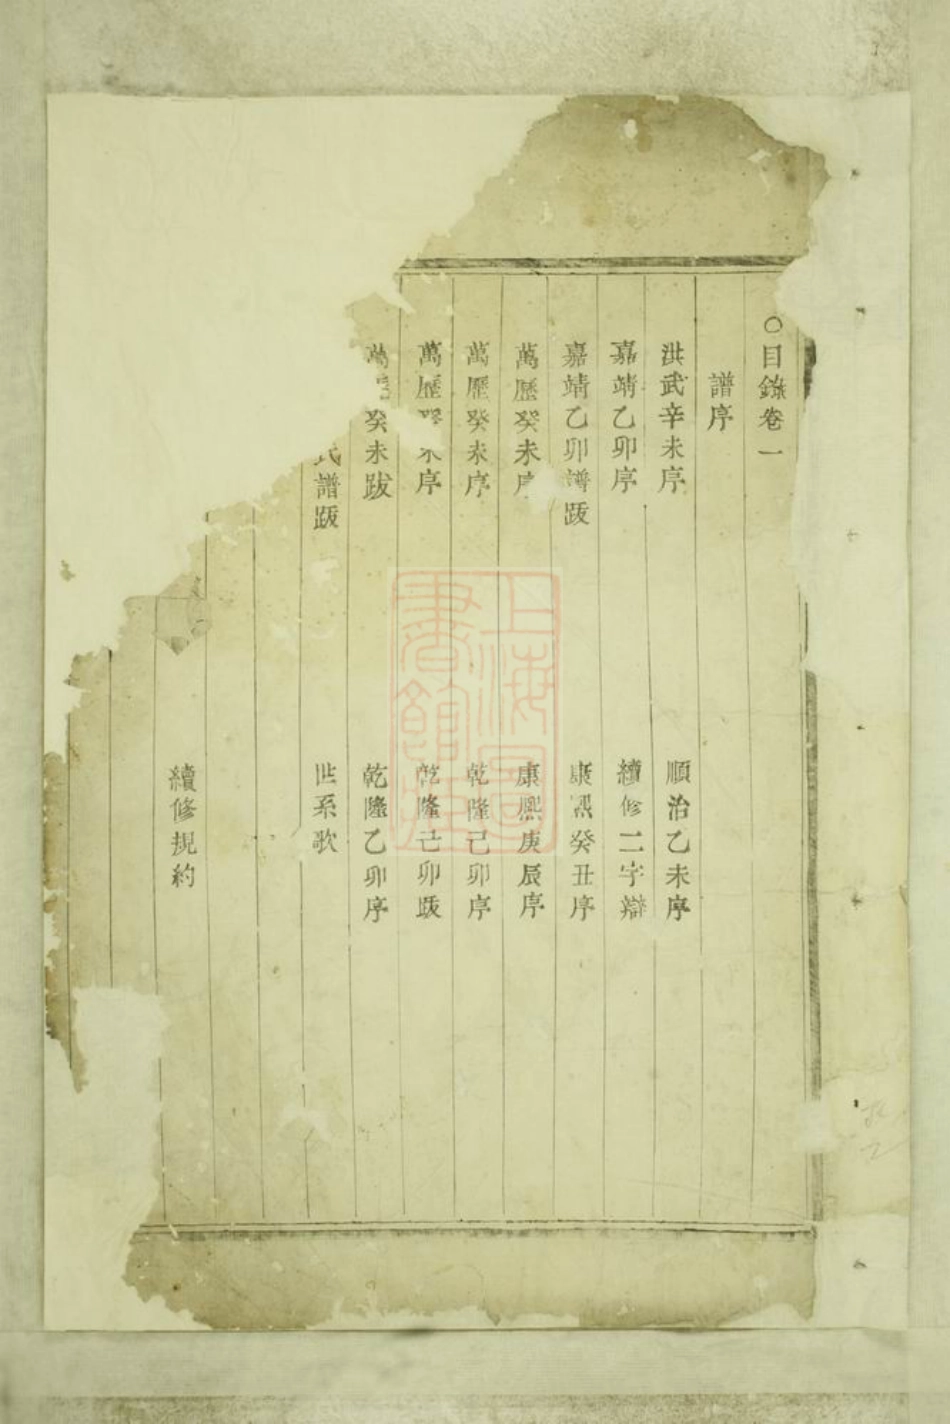 ○目錄卷一
譜序
洪武辛未序
順治乙未序
嘉靖乙卯序
續修二字辯
嘉靖乙卯譜跋
康熙癸丑序
萬歷癸未序
康熙庚辰序
萬歷癸未序
乾隆己卯序
萬歷癸未序
乾隆己卯跋
萬歷癸未跋
乾隆乙卯序
氏譜跋
世系歌
續修規約
上海圖書館藏